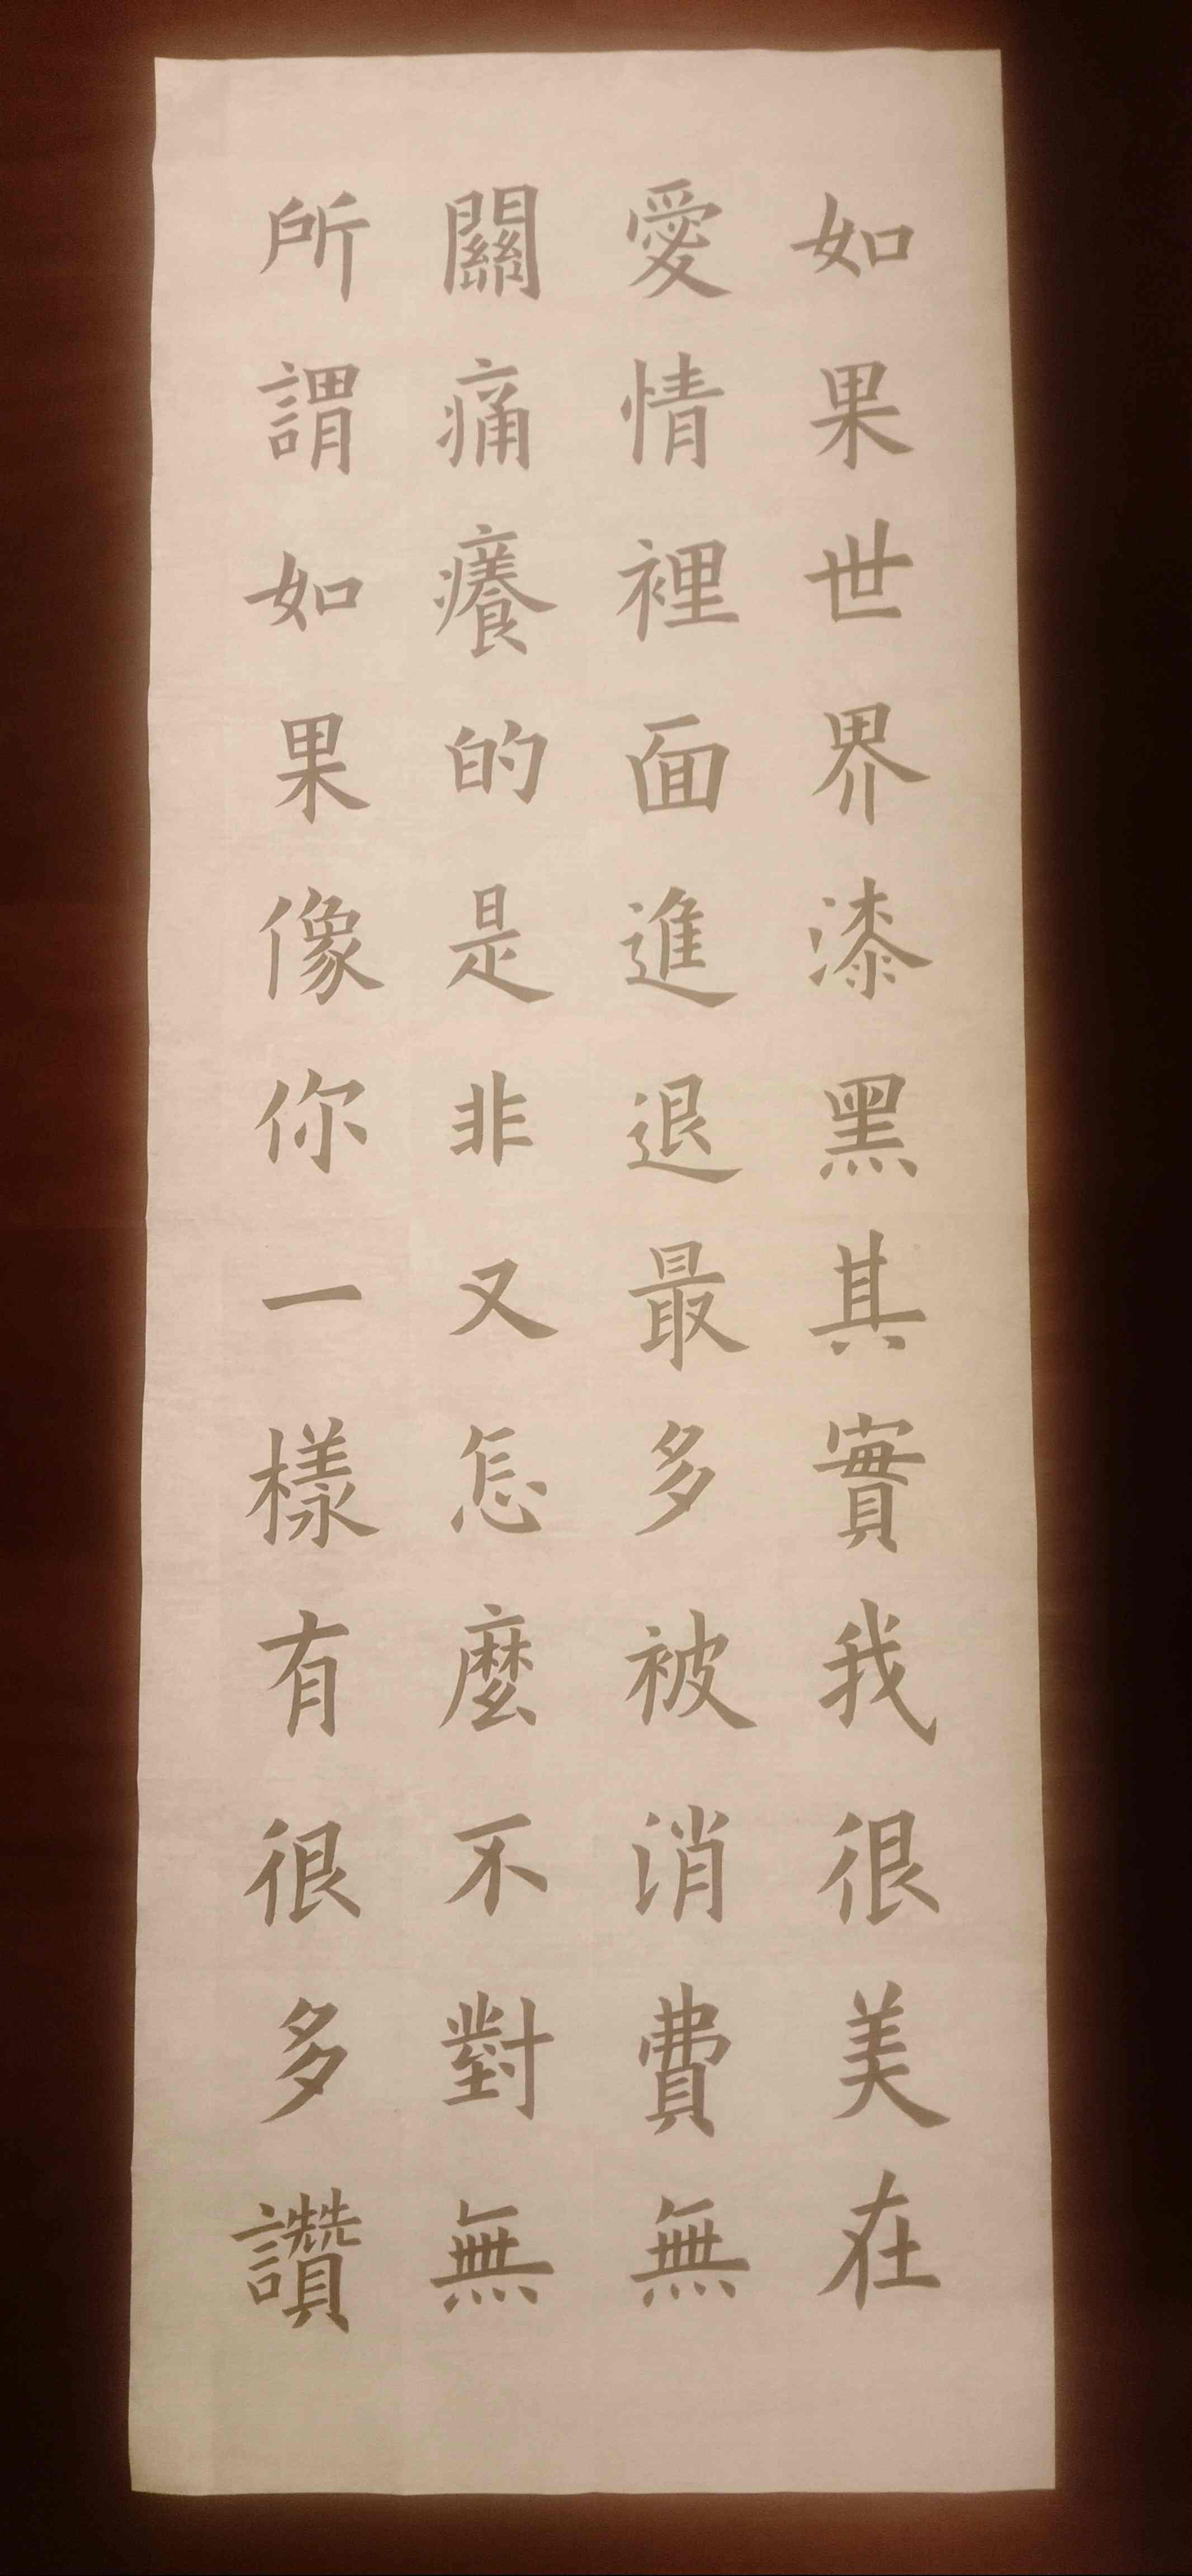 如果世界漆黑其實我很美在
愛情裡面進退最多被消費無
關痛癢的是非又怎麼不對無
所謂如果像你一樣有很多讚